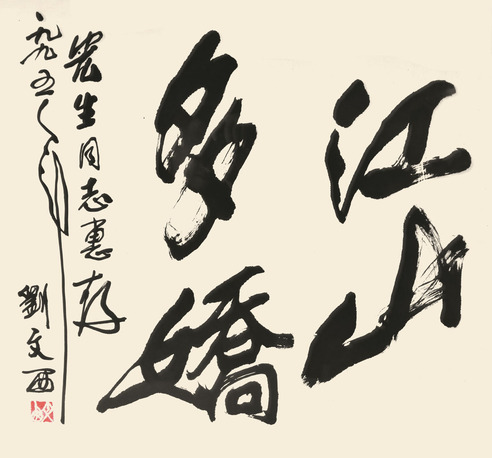 江山
多嬌
生同志惠存
一九九五年
劉文西